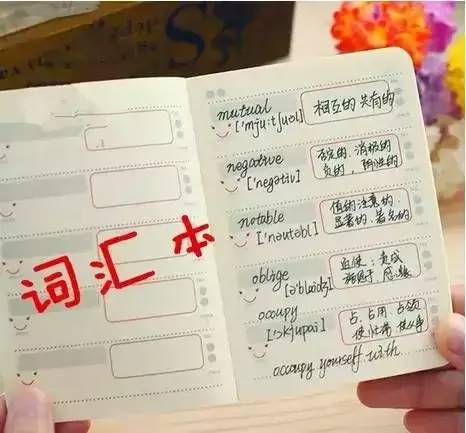 词汇本
mutual
['mju:tʃuəl]
相互的 共有的
negative
['negətiv]
否定的、消极的
负的、阴性的
notable
['nəutəbl]
值的注意的
显著的、著名的
oblige
[ə'blaidʒ]
迫使：责成
occupy
['ɔkjupai]
占、占用 占领
occupy yourself with...